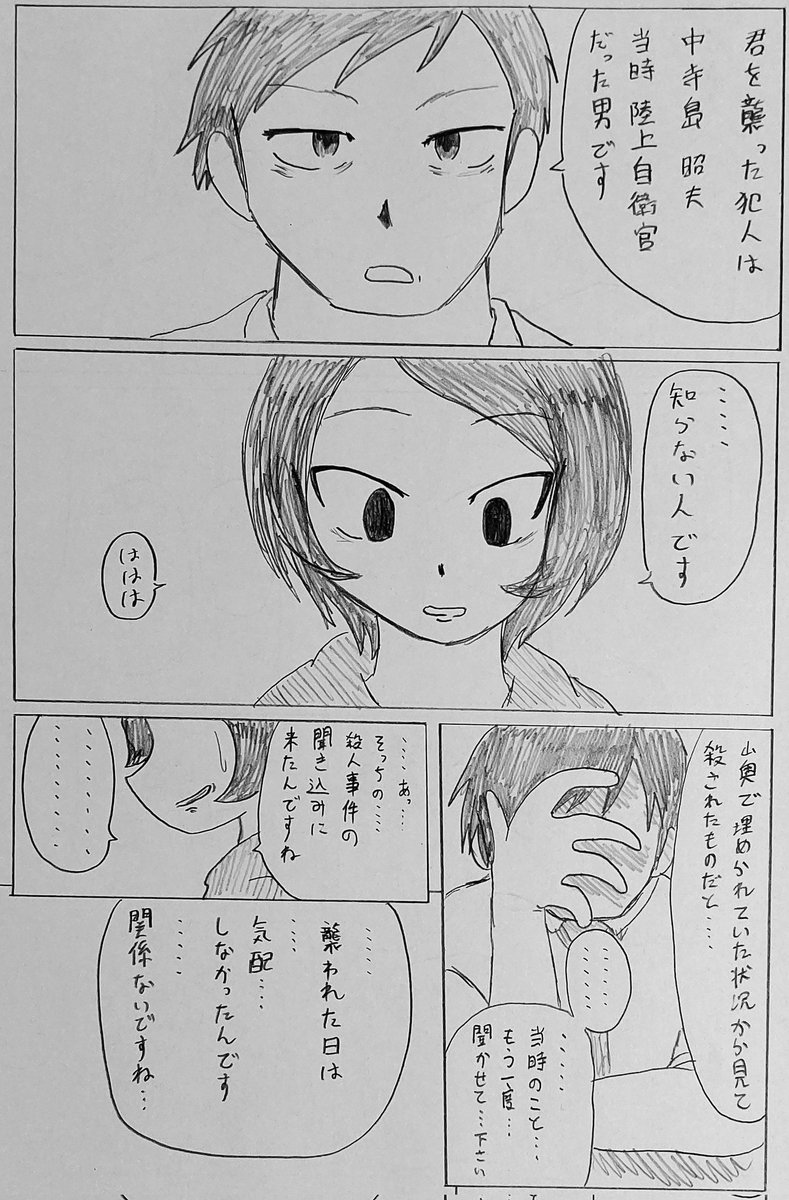 君を襲った犯人は
中寺島 昭夫
当時 陸上自衛官
だった男です
‥‥‥
知らない人です
ははは
山奥で埋められていた状況から見て
殺されたものだと‥‥
‥‥‥‥
‥‥‥
当時のこと‥‥
もう一度‥‥
聞かせて‥‥下さい
‥‥あっ‥‥
そっちの‥‥
殺人事件の
聞き込みに
来たんですね
‥‥‥‥‥
‥‥‥‥‥
‥‥‥
襲われた日は
‥‥‥
気配‥‥
しなかったんです
‥‥‥
関係ないですね‥‥